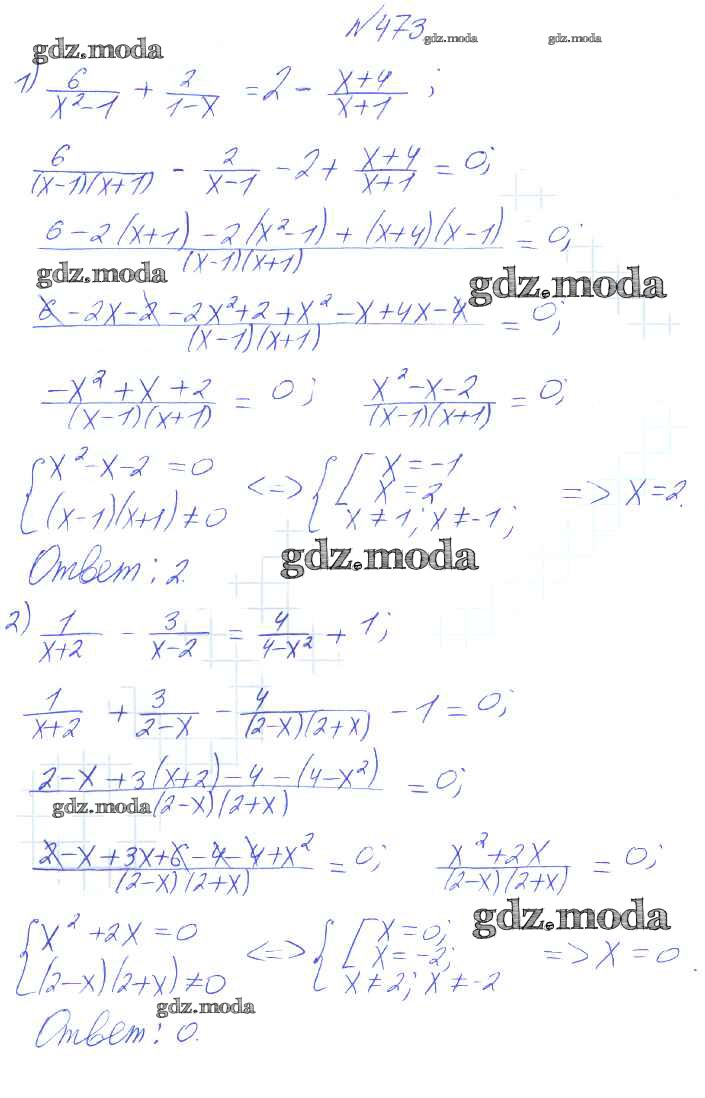 №473
gdz.moda gdz.moda gdz.moda
1) 6/(x²-1) + 2/(1-x) = 2 - (x+4)/(x+1) ;
6/((x-1)(x+1)) - 2/(x-1) - 2 + (x+4)/(x+1) = 0;
(6-2(x+1)-2(x²-1)+(x+4)(x-1))/((x-1)(x+1)) = 0;
gdz.moda gdz.moda
(6-2x-2-2x²+2+x²-x+4x-4)/((x-1)(x+1)) = 0;
(-x²+x+2)/((x-1)(x+1)) = 0; (x²-x-2)/((x-1)(x+1)) = 0;
{ x²-x-2=0 <=> { [ x=-1
(x-1)(x+1)≠0 x=2 => x=2.
x≠1; x≠-1;
Ответ: 2. gdz.moda
2) 1/(x+2) - 3/(x-2) = 4/(4-x²) + 1;
1/(x+2) + 3/(2-x) - 4/((2-x)(2+x)) - 1 = 0;
(2-x+3(x+2)-4-(4-x²))/((2-x)(2+x)) = 0;
gdz.moda
(2-x+3x+6-4-4+x²)/((2-x)(2+x)) = 0; (x²+2x)/((2-x)(2+x)) = 0;
gdz.moda
{ x²+2x=0 <=> { [ x=0;
(2-x)(2+x)≠0 x=-2; => x=0.
x≠2; x≠-2
gdz.moda
Ответ: 0.